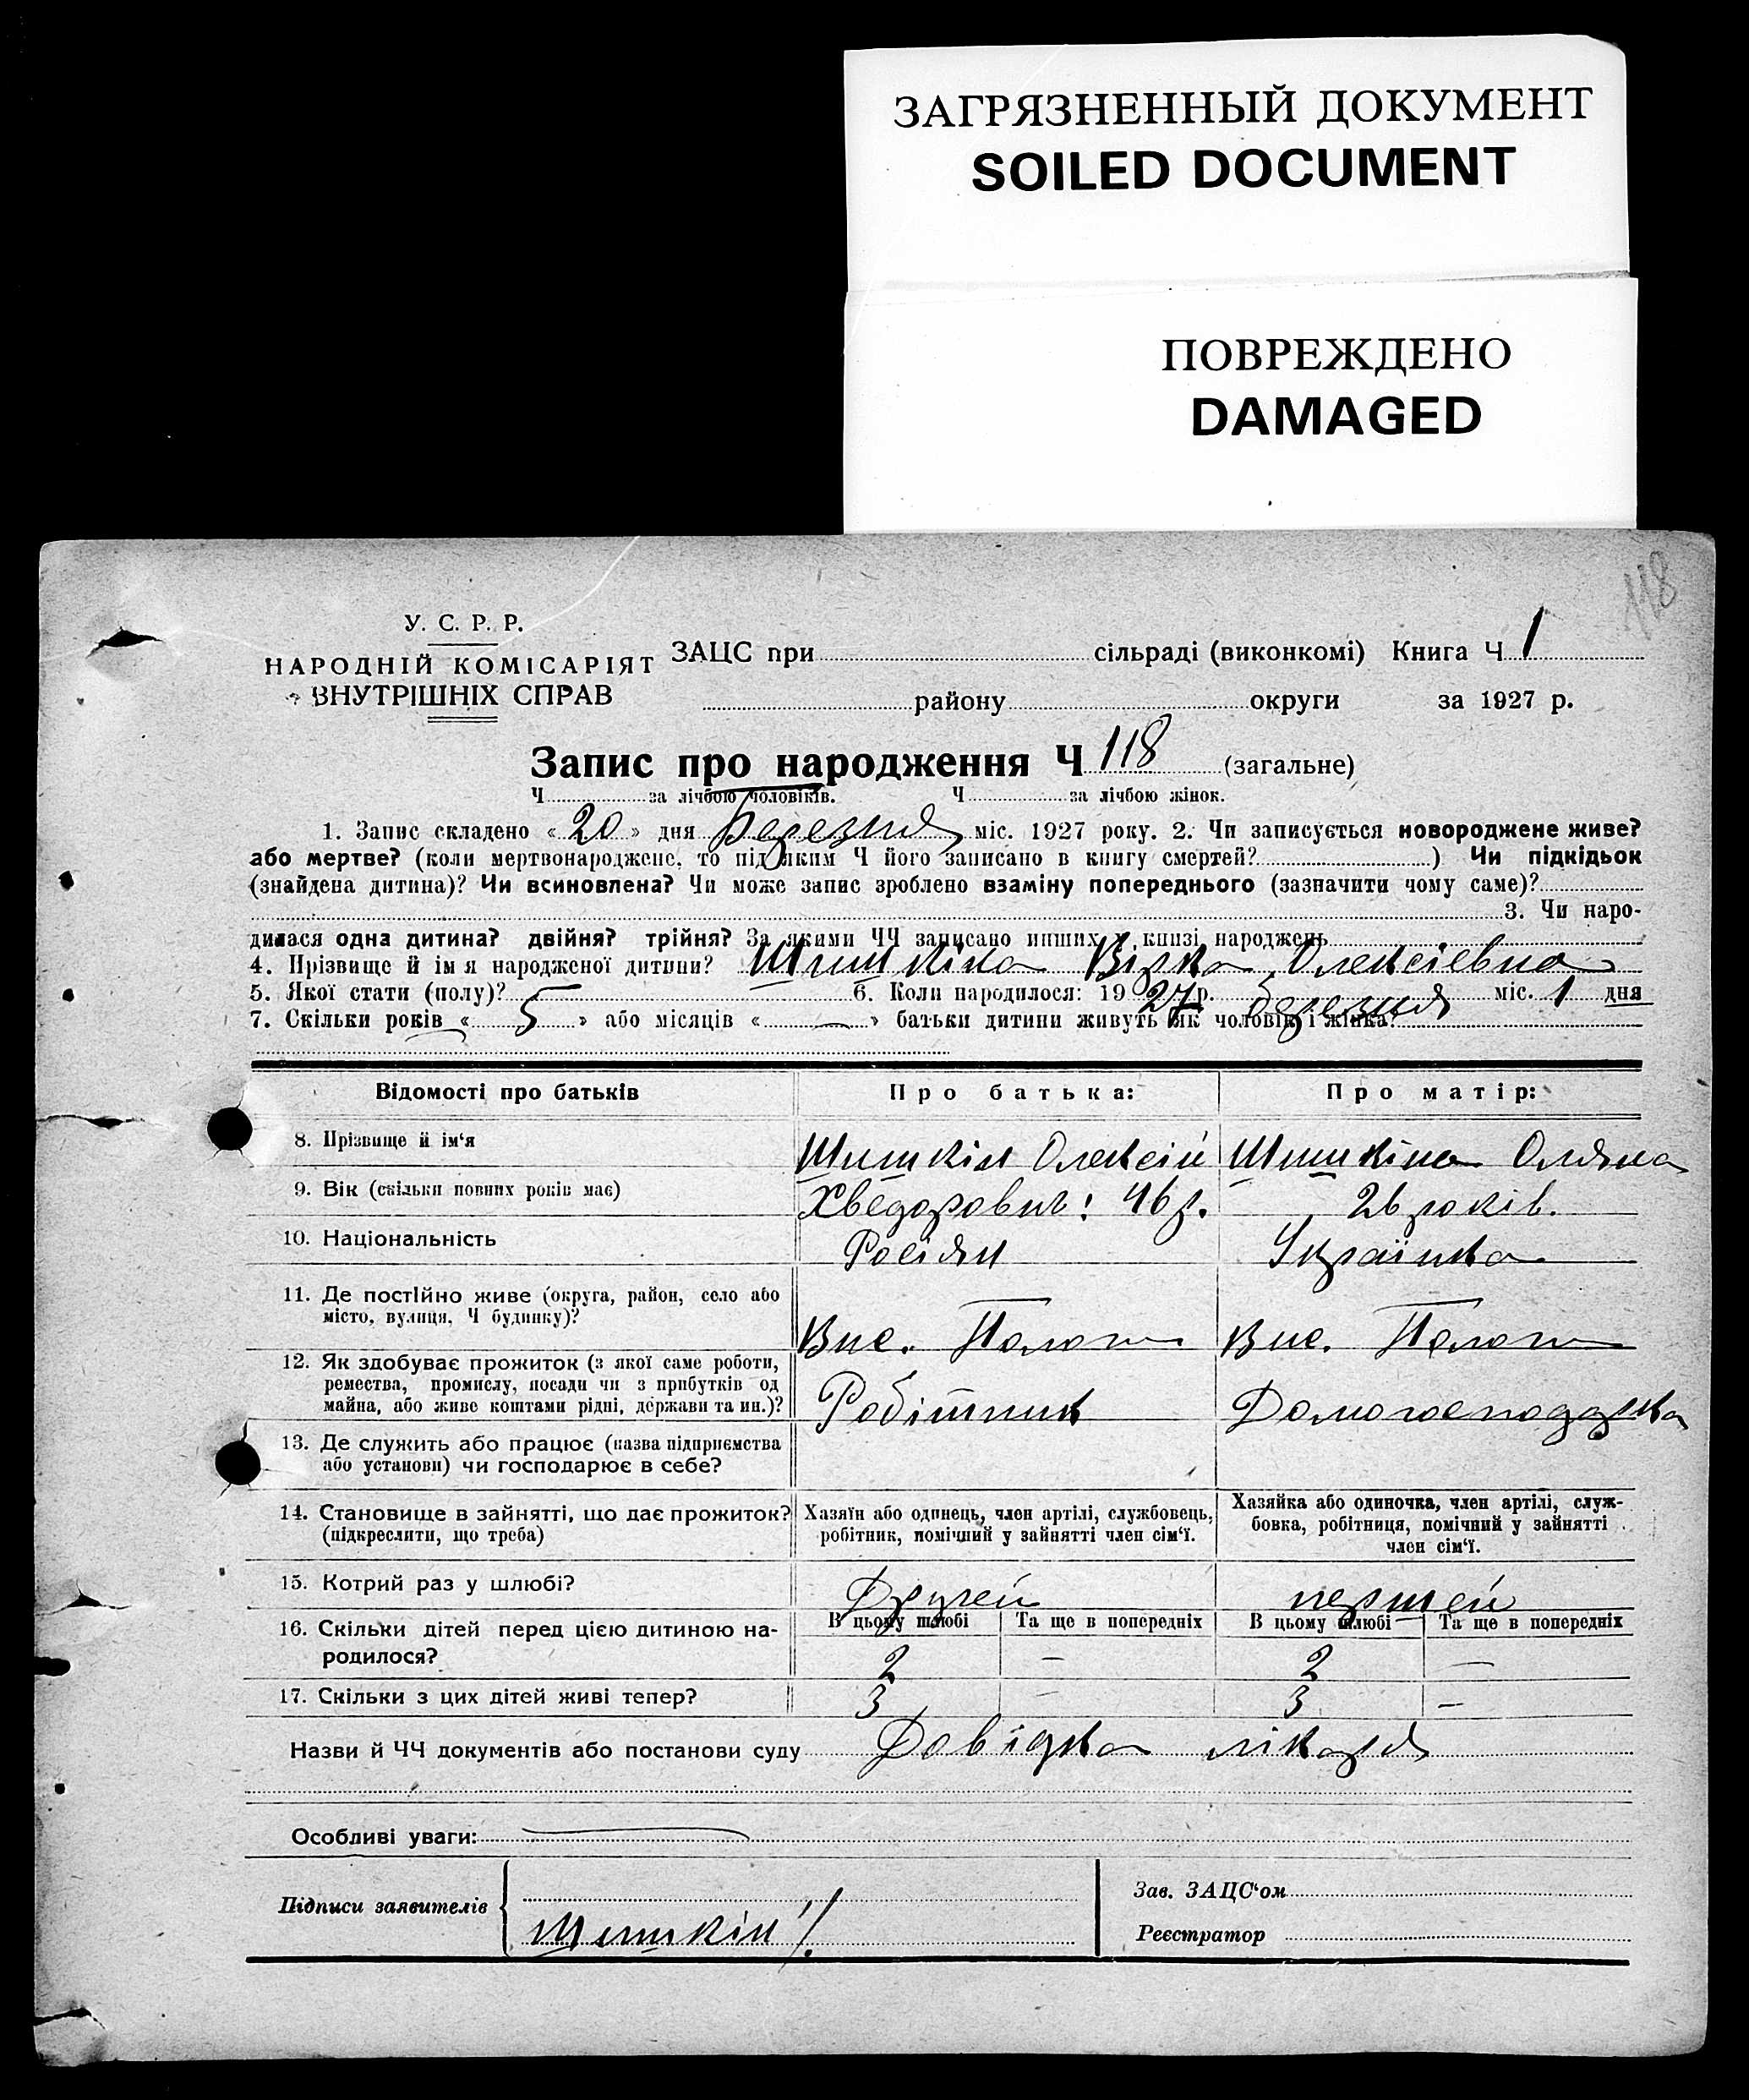 ЗАГРЯЗНЕННЫЙ ДОКУМЕНТ
SOILED DOCUMENT
ПОВРЕЖДЕНО
DAMAGED
118
У. С. Р. Р.
НАРОДНІЙ КОМІСАРІЯТ
ВНУТРІШНІХ СПРАВ
ЗАЦС при сільраді (виконкомі) Книга Ч 1
району округи за 1927 р.
Запис про народження Ч 118 (загальне)
Ч за лічбою чоловіків. Ч за лічбою жінок.
1. Запис складено « 20 » дня березня міс. 1927 року. 2. Чи записується новороджене живе?
або мертве? (коли мертвонароджене, то під яким Ч його записано в книгу смертей? ) Чи підкідьок
(знайдена дитина)? Чи всиновлена? Чи може запис зроблено взаміну попереднього (зазначити чому саме)?
3. Чи наро-
дилася одна дитина? двійня? трійня? За якими ЧЧ записано инших у книзі народжень
4. Прізвище й ім я народженої дитини? Шишкіна Вірка Олексієвна
5. Якої стати (полу)? 6. Коли народилося: 1927 р. березня міс. 1 дня
7. Скільки років « 5 » або місяців « — » батьки дитини живуть як чоловік і жінка?
Відомості про батьків Про батька: Про матір:
8. Прізвище й ім‘я Шишкін Олексій Шишкіна Оляна
9. Вік (скільки повних років має) Хведорович: 46 р. 26 років.
10. Національність Росіян Українка
11. Де постійно живе (округа, район, село або
місто, вулиця, Ч будинку)? Вис. Пологи Вис. Пологи
12. Як здобуває прожиток (з якої саме роботи,
ремества, промислу, посади чи з прибутків од
майна, або живе коштами рідні, держави та ин.)? Робітник Домогосподарка
13. Де служить або працює (назва підприємства
або установи) чи господарює в себе?
14. Становище в зайнятті, що дає прожиток?
(підкреслити, що треба)
Хазяїн або одинець, член артілі, службовець,
робітник, помічний у зайнятті член сім‘ї.
Хазяйка або одиночка, член артілі, служ-
бовка, робітниця, помічний у зайнятті
член сім‘ї.
15. Котрий раз у шлюбі? Другей першей
16. Скільки дітей перед цією дитиною на-
родилося?
В цьому шлюбі Та ще в попередніх В цьому шлюбі Та ще в попередніх
2 — 2 —
17. Скільки з цих дітей живі тепер? 3 — 3 —
Назви й ЧЧ документів або постанови суду Довідка лікаря
Особливі уваги:
Підписи заявителів Шишкін
Зав. ЗАЦС‘ом
Реєстратор